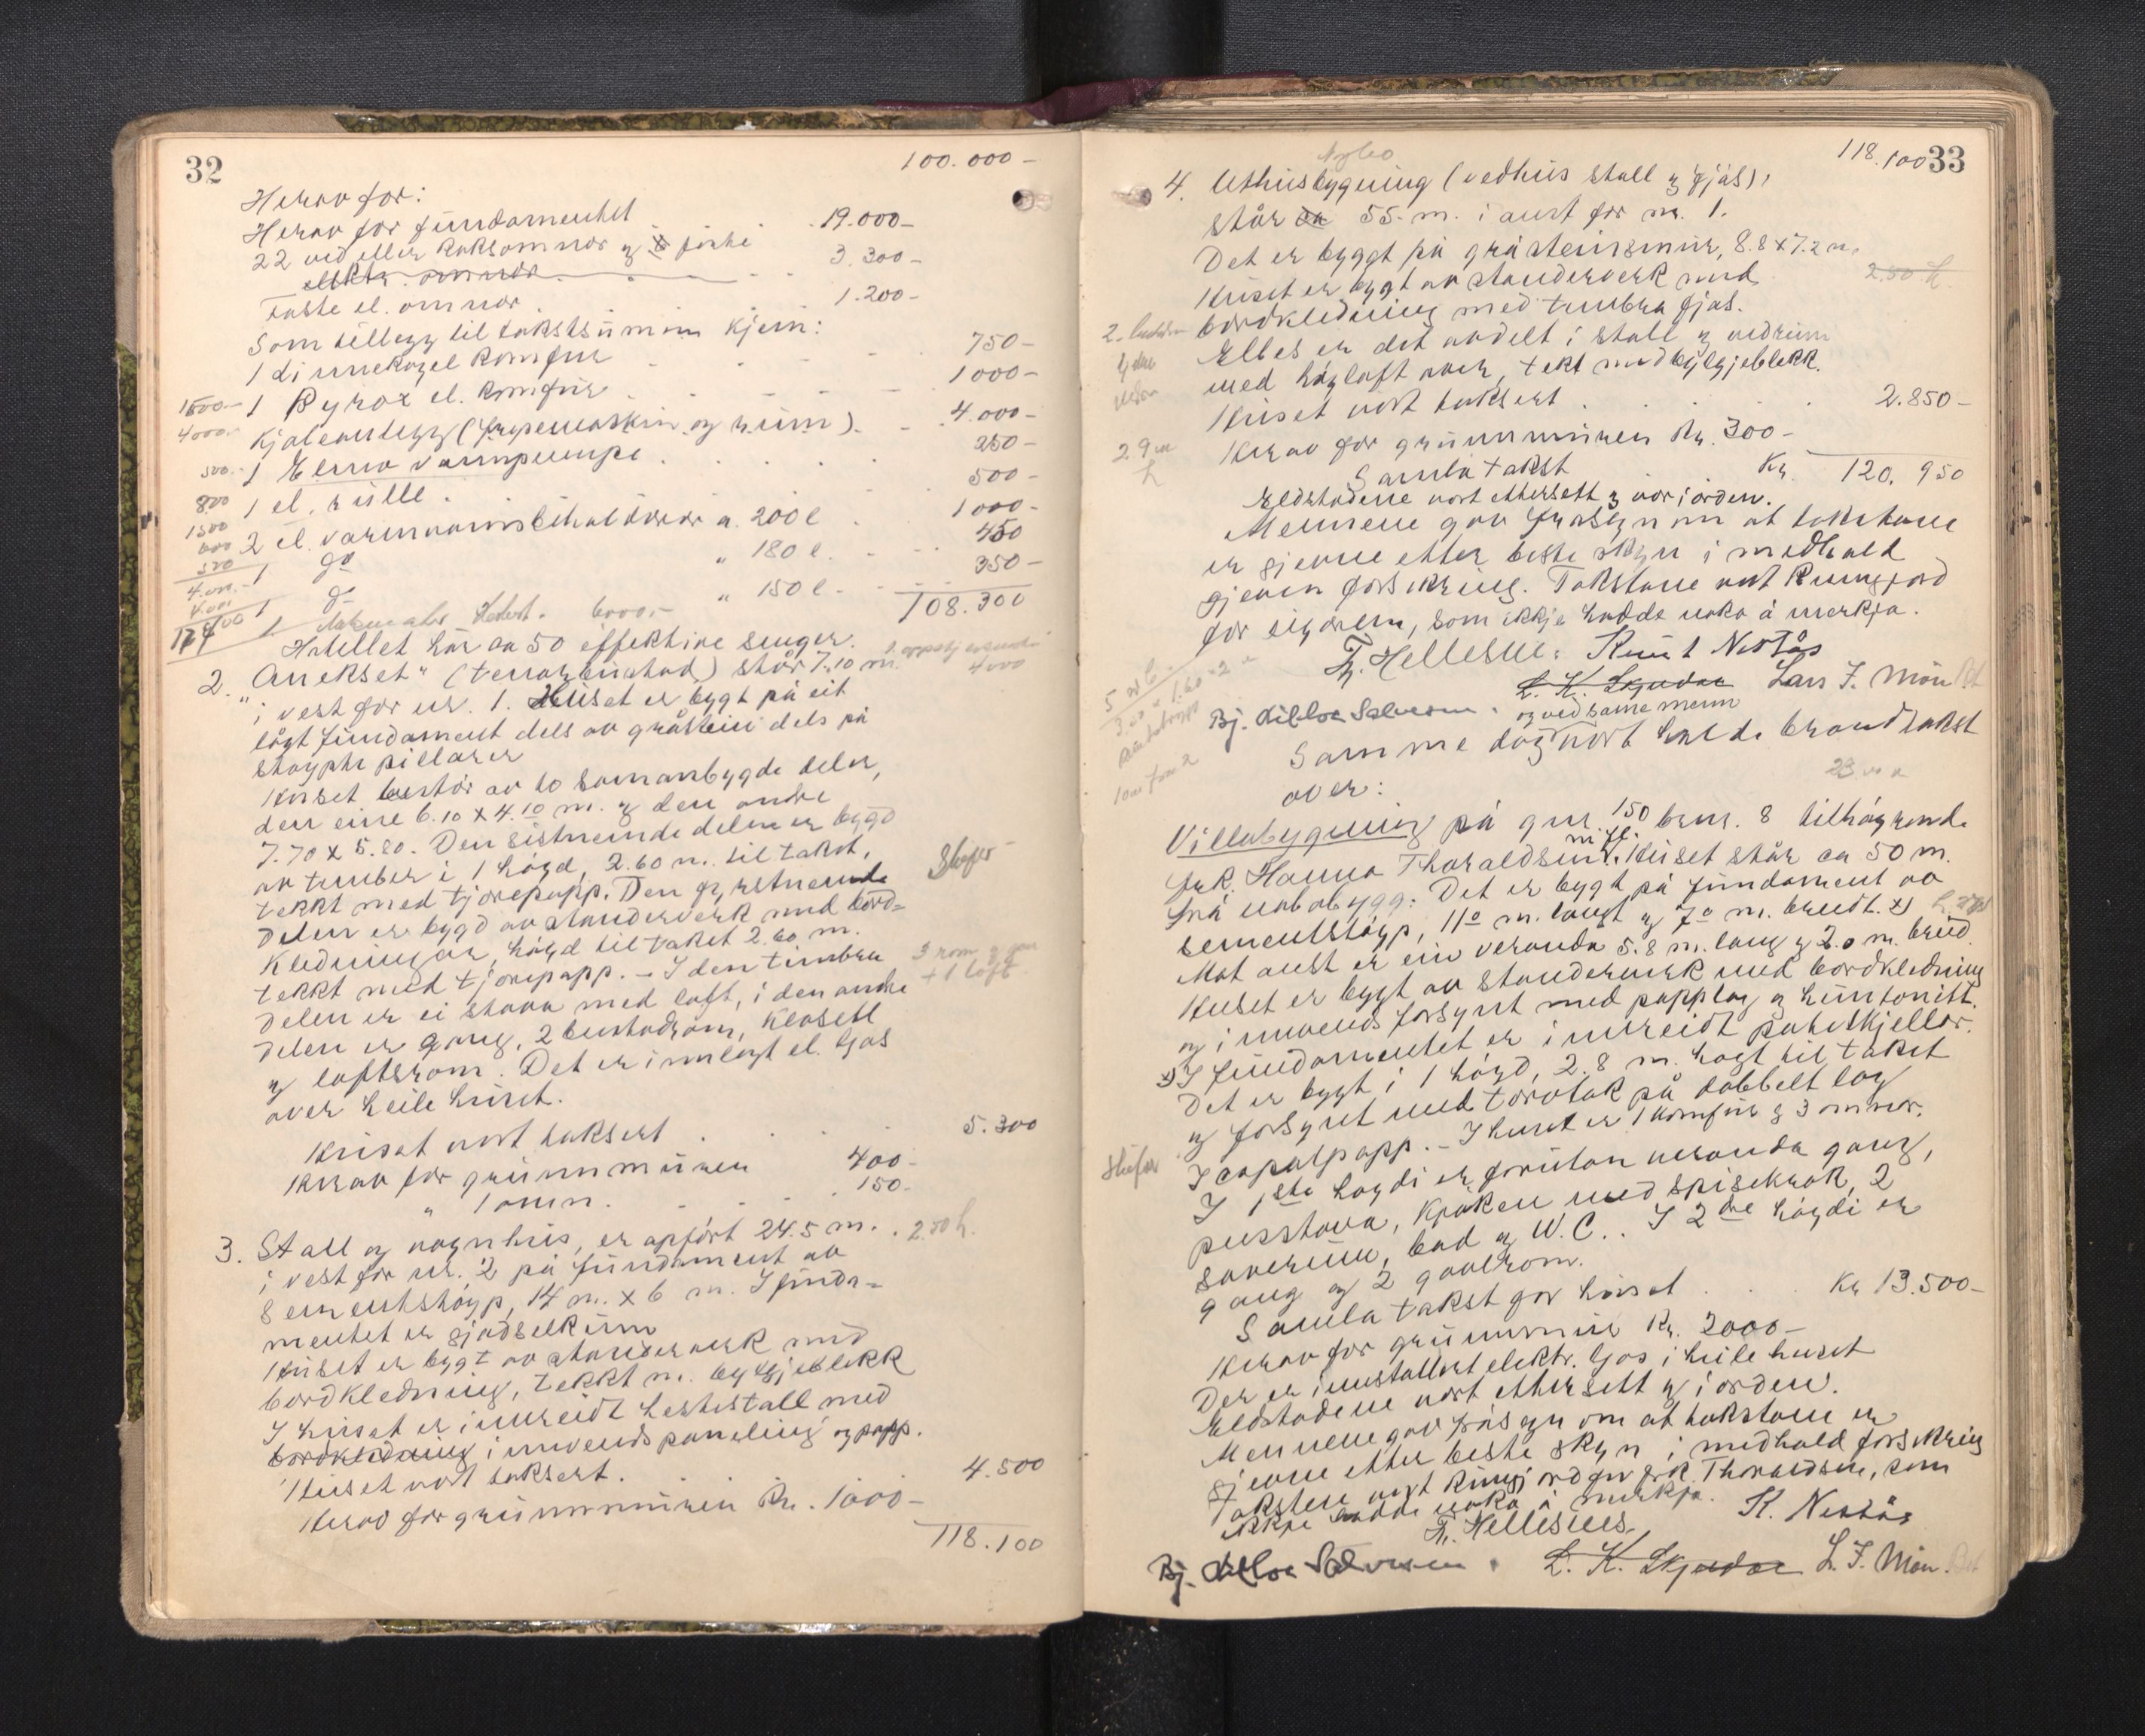 32
100.000 –
Herav for:
Herav for fundamentet 19.000 –
22 ved eller koksomnar og faste 3.300 –
elektr. omnar
Faste el. omnar 1.200 –
Som tillegg til takstsumm kjem:
1 komfur 750 –
1500.– 1 el. komfur 1000 –
4000.– Kjøleanlegg (frysemaskin og rum) 4.000 –
500.– 1 varmpumpe 250 –
800 1 el. rulle 500 –
1500 2 el. varmvannsbehaldarar a. 200 l 1000 –
600 1 do „ 180 l. 450
500 1 do „ 150 l. 350 –
4.000.–
108.300
6000.–
Hotellet har ca 50 effektive senger.
2. „Anekset" står 7.10 m.
4000
i vest for nr. 1. Huset er bygt på eit
lågt fundament dels av gråstein dels på
støypte pillarer
Huset består av to samanbygde deler,
den eine 6.10 x 4.10 m. og den andre
7.70 x 5.80. Den sistnemnde delen er bygd
av tømber i 1 høgd, 2.60 m. til taket,
tekkt med tjørepapp. Den fyrstnemnde
delen er bygd av standerverk med bord-
kledningar, høgd til taket 2.60 m.
tekkt med tjørepapp. – I den timbra 3 rom og gan
delen er ei stova med loft, i den andre + 1 loft
delen er gang, 2 bustadrom, klosett
og loftsrom. Det er innlagt el. ljos
over heile huset.
Huset vart taksert 5.300
Herav for grunnmuren 400 –
„ 1 omn. 150.–
3. Stall og vognhus, er opført 24.5 m.
i vest for nr. 2 på fundament av
sementstøyp, 14 m. x 6 m. I funda-
mentet er gjødselkum
Huset er bygt av standerverk med
bordkledning, tekkt m. bylgjeblekk
I huset er innreidt hestestall med
bordkledning innvends paneling og papp.
Huset vart taksert. 4.500
Herav for grunnmuren Kr. 1000 –
118.100
118.100 33
4. Uthusbygning (vedhus stall og fjøs),
står ca 55 m. i aust for nr. 1.
Det er byggt på gråsteinsmur, 8.8 x 7.2 m.
Huset er bygt av standerverk med
bordkledning med timbra fjøs.
Elles er det avdelt i stall og vedrum
med høgloft over, tekt med bylgjeblekk.
Huset vart taksert 2.850 –
Herav for grunnmuren Kr. 300 –
Samla takst Kr. 120.950
Eldstadene vart ettersett og var i orden.
Mennene gav fråsegn om at takstane
er gjevne etter beste skyn i medhald
gjeven forsikring. Takstane vart kunngjord
for eigaren, som ikkje hadde noko å merkja.
Hellesnes. Knut Nestås
L. K. Skjeldar Lars J. Møn
Bj. Salvesen. og ved same menn
Samme dag vart halde brandtakst
over:
Villabygning på gnr. 150 brnr. 8 tilhøyrende
frk. Hanna Thoraldsen m. fl. Huset står ca 50 m.
frå nabobygg: Det er bygt på fundament av
sementstøyp, 11⁰ m. langt og 7⁰ m. breidt. x)
Mot aust er ein veranda 5.8 m. lang og 2.0 m. breid
Huset er bygt av standerverk med bordkledning
og innvends forsynt med papplag og huntonitt.
x) I fundamentet er innreidt potetkjellar.
Det er bygt i 1 høgd, 2.8 m. høgt til taket
og forsynt med torvtak på dobbelt lag
Icopalpapp. – I huset er 1 komfur og 3 omnar.
I 1ste høgdi er forutan veranda gang,
peisstova, kjøken med spisekrok, 2
soverum, bad og W.C. I 2dre høgdi er
gang og 2 gavlrom.
Samla takst for huset Kr 13.500 –
Herav for grunnmur Kr. 2000 –
Der er innstallert elektr. ljos i heile huset
Eldstadene vart ettersett og i orden.
Mennene gav fråsegn om at takstane er
gjevne etter beste skyn i medhald forsikring
Takstene vart kungjord for frk. Thoraldsen, som
ikkje hadde noko å merkja. K. Nestås
Hellesnes.
Bj. Salvesen. L. K. Skjeldar L. J. Møn.